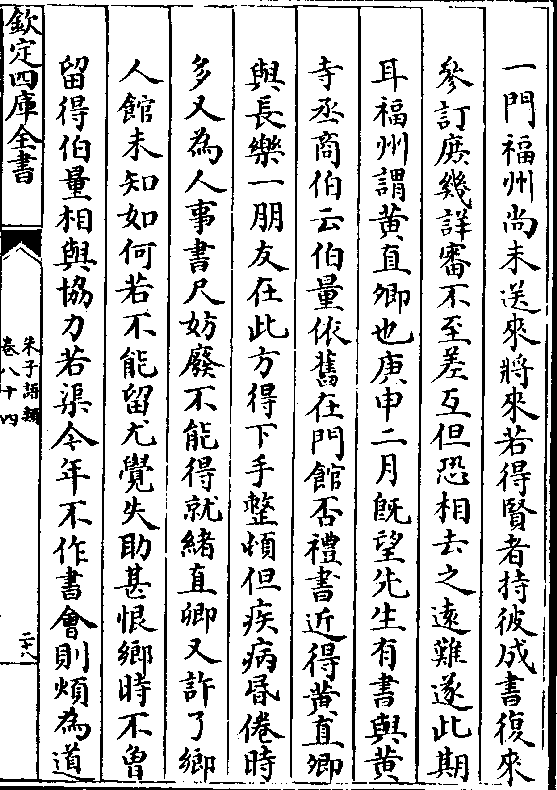 一門福州尚未送來將來若得賢者持彼成書復來
參訂庶幾詳審不至差互但恐相去之遠難遂此期
耳福州謂黄直卿也庚申二月既望先生有書與黄
寺丞商伯云伯量依舊在門館否禮書近得黄直卿
與長樂一朋友在此方得下手整頓但疾病昬倦時
多又為人事書尺妨廢不能得就緒直卿又許了鄉
人館未知如何若不能留尤覺失助甚恨鄉時不曾
留得伯量相與協力若渠今年不作書會則煩為道
欽定四庫全書
朱子語類
卷八十四